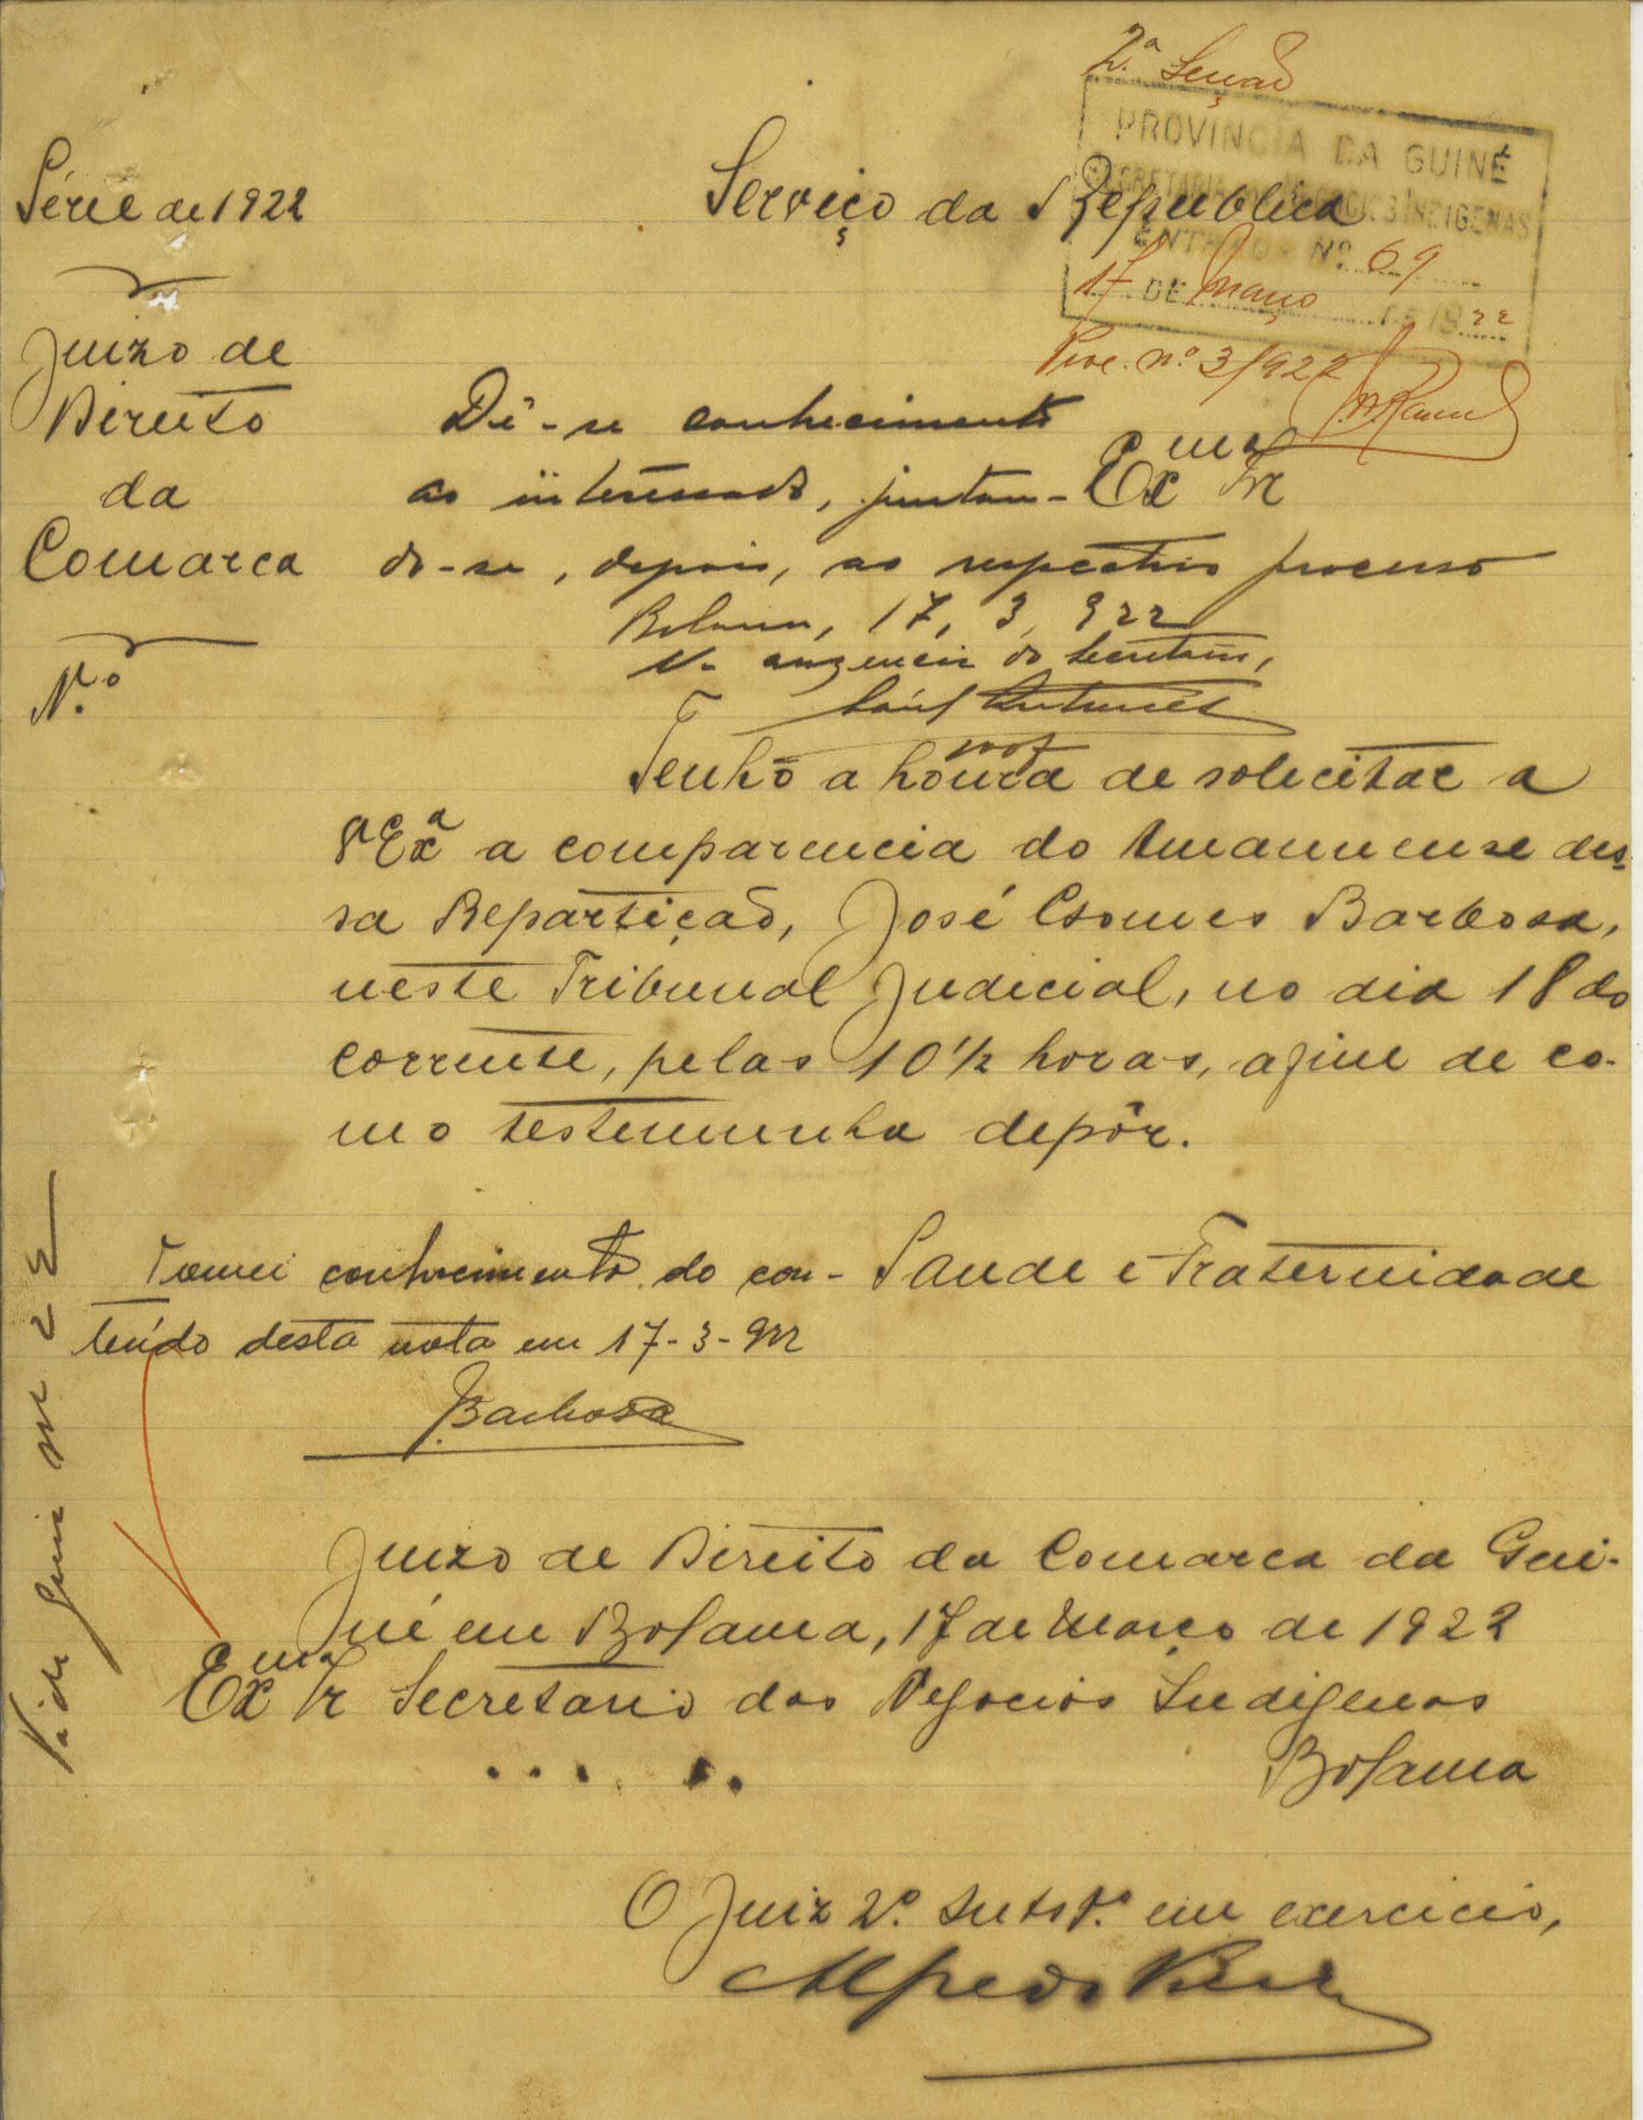 2.ª Secção
PROVINCIA DA GUINÉ
SECRETARIA DOS NEGOCIOS INDIGENAS
ENTRADA Nº 69
17 DE Março DE 1922
Proc. nº 3/922
Série de 1922
Serviço da Republica
Juizo de
Direito
da
Comarca
N.º
Dê-se conhecimento
ao interessado, juntan-
do-se, depois, ao respectivo processo
Bolama, 17, 3, 922
Na auzencia do Secretario,
Exmo Snr
Tenho a honra de solicitar a
V Exª a comparencia do Amanuense des-
sa Repartição, José Gomes Barbosa,
neste Tribunal Judicial, no dia 18 do
corrente, pelas 10 ½ horas, afim de co-
mo testemunha depôr.
Saude e Fraternidade
Tomei conhecimento do con-
teúdo desta nota em 17-3-922
JBarbosa
Juizo de Direito da Comarca da Gui-
né em Bolama, 17 de Março de 1922
Exmo Sr Secretario dos Negocios Indigenas
Bolama
O Juiz 2º. Subst.º em exercicio,
Alfredo
Vide